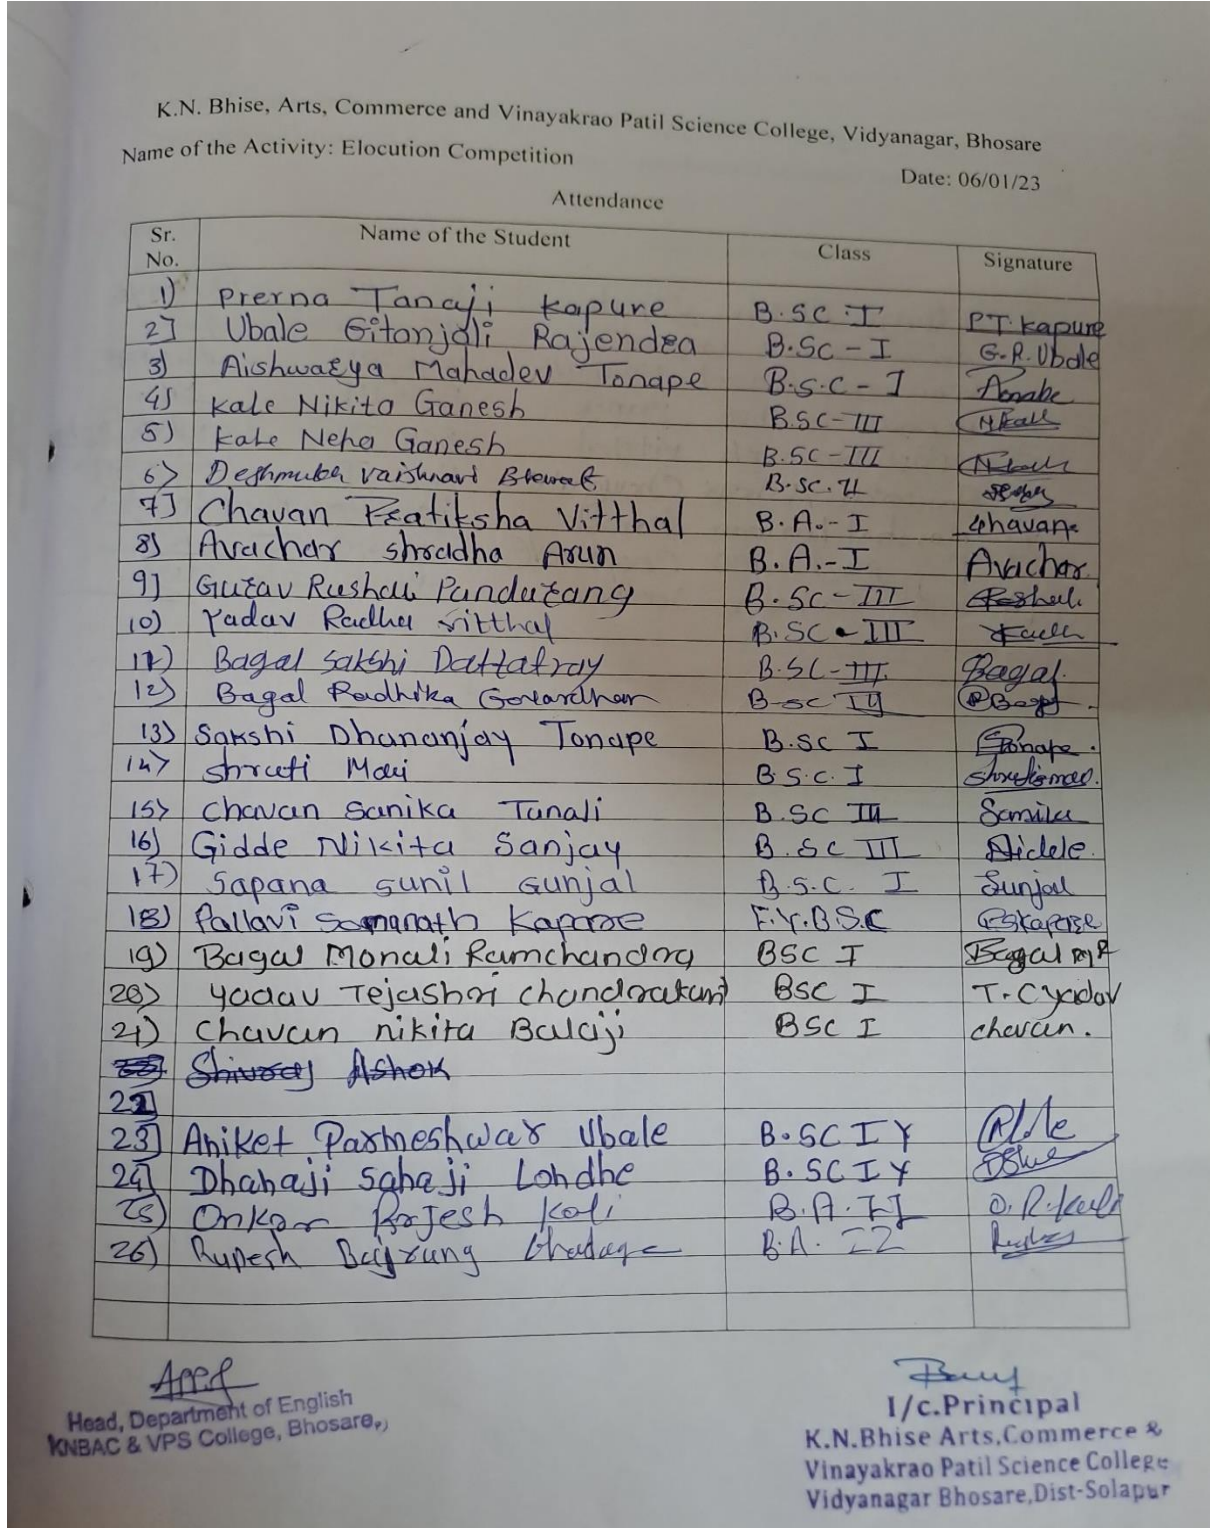 K.N. Bhise, Arts, Commerce and Vinayakrao Patil Science College, Vidyanagar, Bhosare
Name of the Activity: Elocution Competition
Date: 06/01/23
Attendance
Sr. No. Name of the Student Class Signature
1) Prerna Tanaji Kapure B.SC.I P.T. Kapure
2] Ubale Gitanjali Rajendra B.SC-I G.R.Ubale
3) Aishwarya Mahadev Tonape B.S.C-I
4) Kale Nikita Ganesh B.SC-III NKale
5) Kale Neha Ganesh B.SC-III
6) Deshmukh Vaishnavi B.SC.II
7] Chavan Pratiksha Vitthal B.A.-I Chavan
8) Avachar shradha Arun B.A.-I Avachar
9] Gurav Rushali Pandurang B.SC-III
10) Yadav Radha vitthal B.SC-III
11) Bagal Sakshi Dattatray B.SC-III Bagal.
12) Bagal Radhika Govardhan B-sc
13) Sakshi Dhananjay Tonape B.SC I Tonape.
14) Shruti Mali B.S.C.I
15) Chavan Sanika Tanaji B.SC III Sanika
16) Gidde Nikita Sanjay B.SC III
17) Sapana sunil Gunjal B.S.C. I Gunjal
18) Pallavi Somanath Kaparse F.Y.B.S.C
19) Bagal Monali Ramchandra BSC I Bagal
20) Yadav Tejashri Chandrakant BSC I T.C yadav
21) Chavan nikita Balaji BSC I chavan.
Shivraj Ashok
22]
23] Aniket Parmeshwar Ubale B.SC I Y
24] Dhanaji Sahaji Londhe B.SC I Y
25) Onkar Rajesh Koli B.A.II
26) Rupesh Bajrang B.A. II
Head, Department of English
KNBAC & VPS College, Bhosare,
I/c.Principal
K.N.Bhise Arts,Commerce &
Vinayakrao Patil Science College
Vidyanagar Bhosare,Dist-Solapur